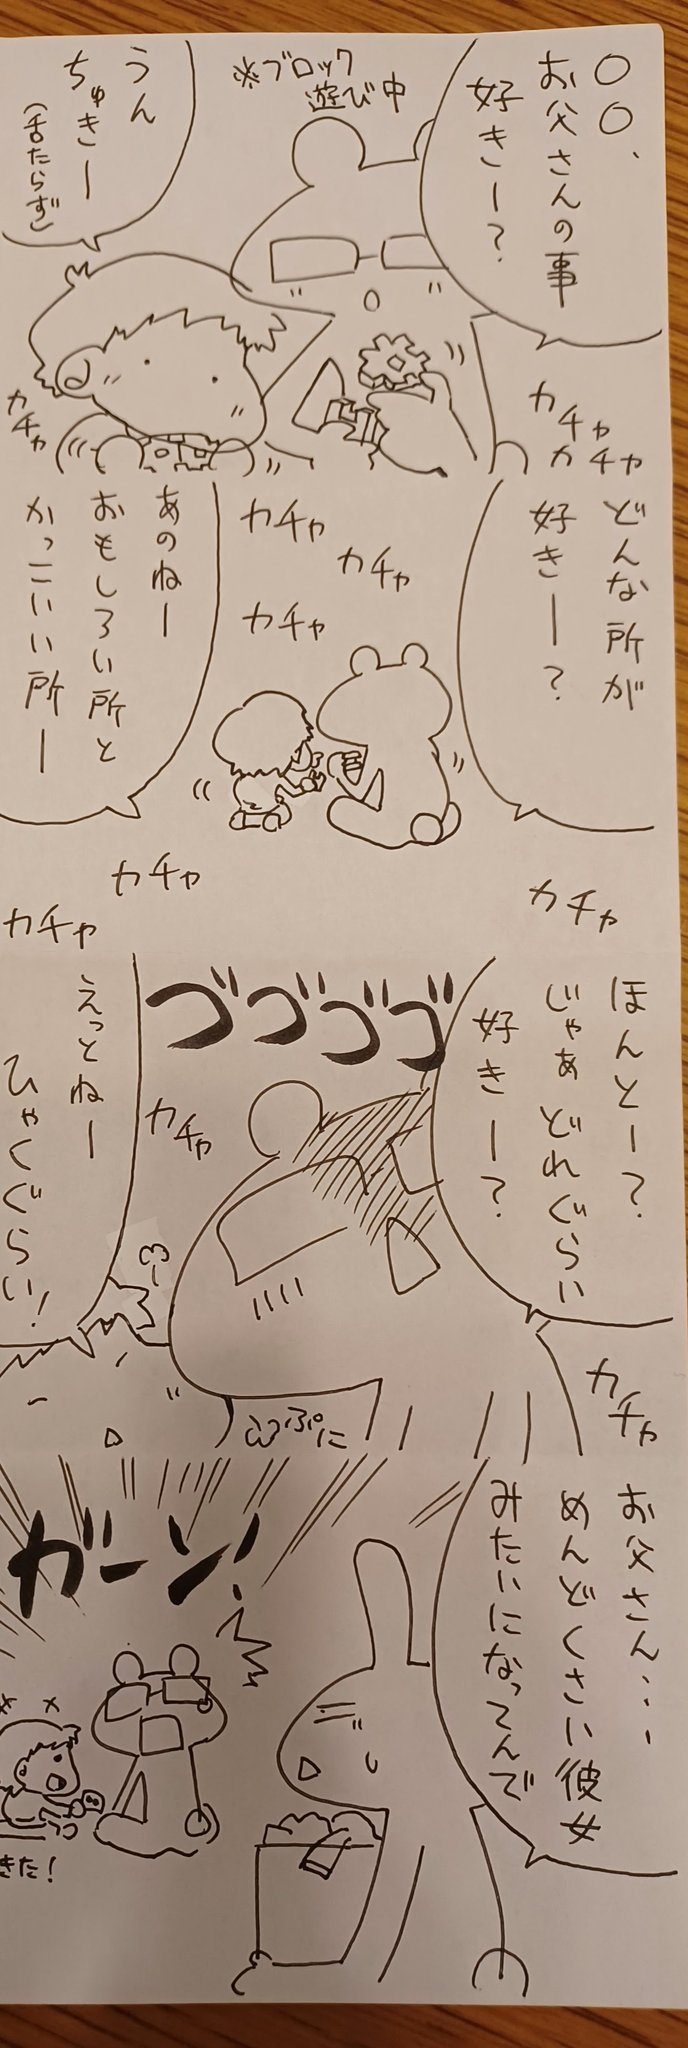 ○○、
お父さんの事
好きー？
※ブロック
遊び中
うん
ちゅきー
(舌たらず)
カチャ
カチャ
カチャ
どんな所が
好きー？
カチャ
カチャ
カチャ
あのねー
おもしろい所と
かっこいい所ー
カチャ
カチャ
カチャ
ほんとー？
じゃあどれぐらい
好きー？
ゴゴゴゴ
カチャ
えっとねー
ひゃくぐらい！
ぷに
カチャ
お父さん…
めんどくさい彼女
みたいになってんで
ガーン！
きた！